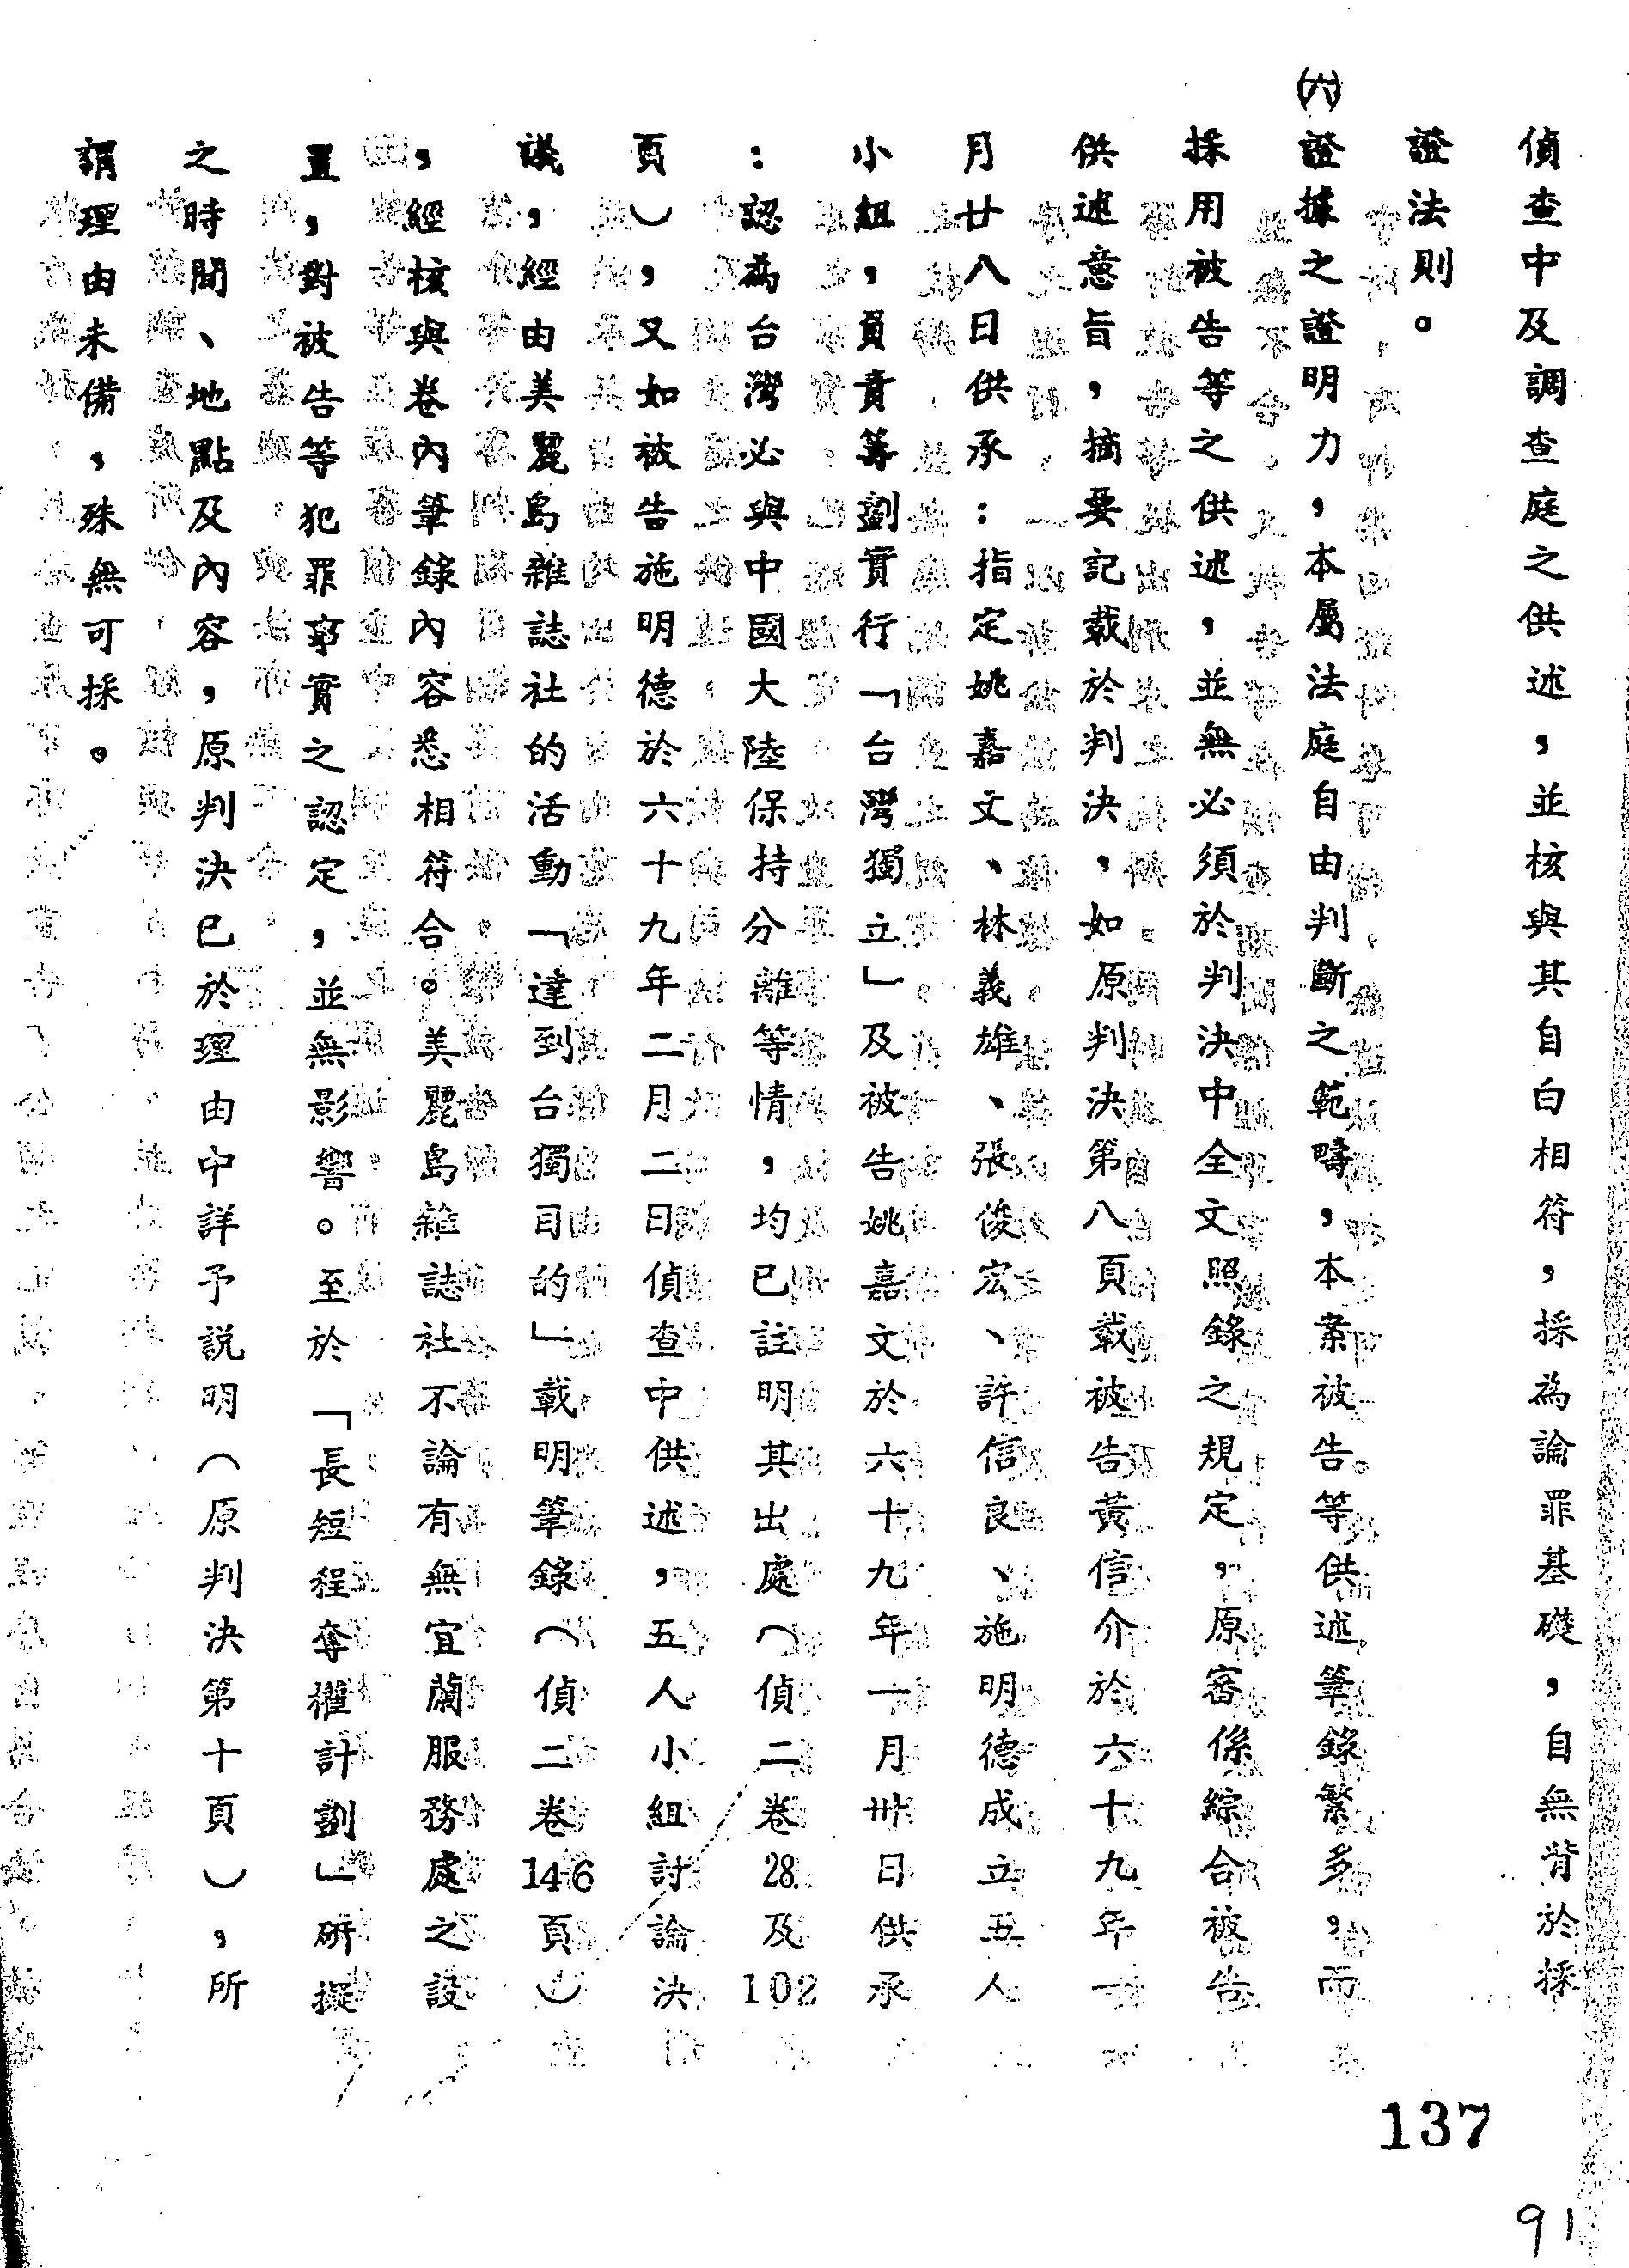 偵查中及調查庭之供述，並核與其自白相符，採為論罪基礎，自無背於採
證法則。
㈥證據之證明力，本屬法庭自由判斷之範疇，本案被告等供述筆錄繁多，而
採用被告等之供述，並無必須於判決中全文照錄之規定，原審係綜合被告
供述意旨，摘要記載於判決，如原判決第八頁載被告黃信介於六十九年一
月廿八日供承：指定姚嘉文、林義雄、張俊宏、許信良、施明德成立五人
小組，負責籌劃實行「台灣獨立」及被告姚嘉文於六十九年一月卅日供承
：認為台灣必與中國大陸保持分離等情，均已註明其出處（偵二卷28及102
頁），又如被告施明德於六十九年二月二日偵查中供述，五人小組討論決
議，經由美麗島雜誌社的活動「達到台獨目的」載明筆錄（偵二卷146頁）
，經核與卷內筆錄內容悉相符合。美麗島雜誌社不論有無宜蘭服務處之設
置，對被告等犯罪事實之認定，並無影響。至於「長短程奪權計劃」研擬
之時間、地點及內容，原判決已於理由中詳予説明（原判決第十頁），所
謂理由未備，殊無可採。
137
91